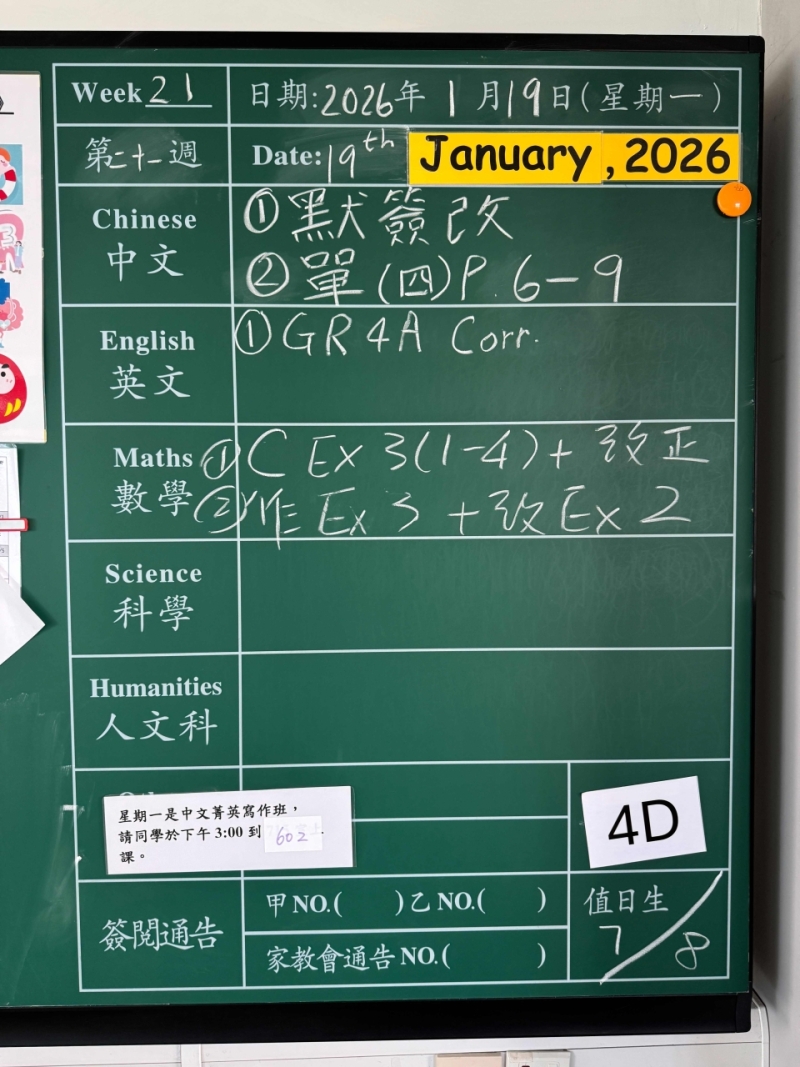 Week 21
日期:2026年 1月19日(星期一)
第二十一週
Date:19th January, 2026
Chinese
中文
①默簽改
②單(四)P.6-9
English
英文
①GR4A Corr.
Maths
數學
①C Ex 3(1-4)+改正
②作Ex 3 +改Ex 2
Science
科學
Humanities
人文科
星期一是中文菁英寫作班,
請同學於下午3:00到 602
課。
4D
簽閱通告
甲NO.( )乙NO.( )
家教會通告NO.( )
值日生
7/8